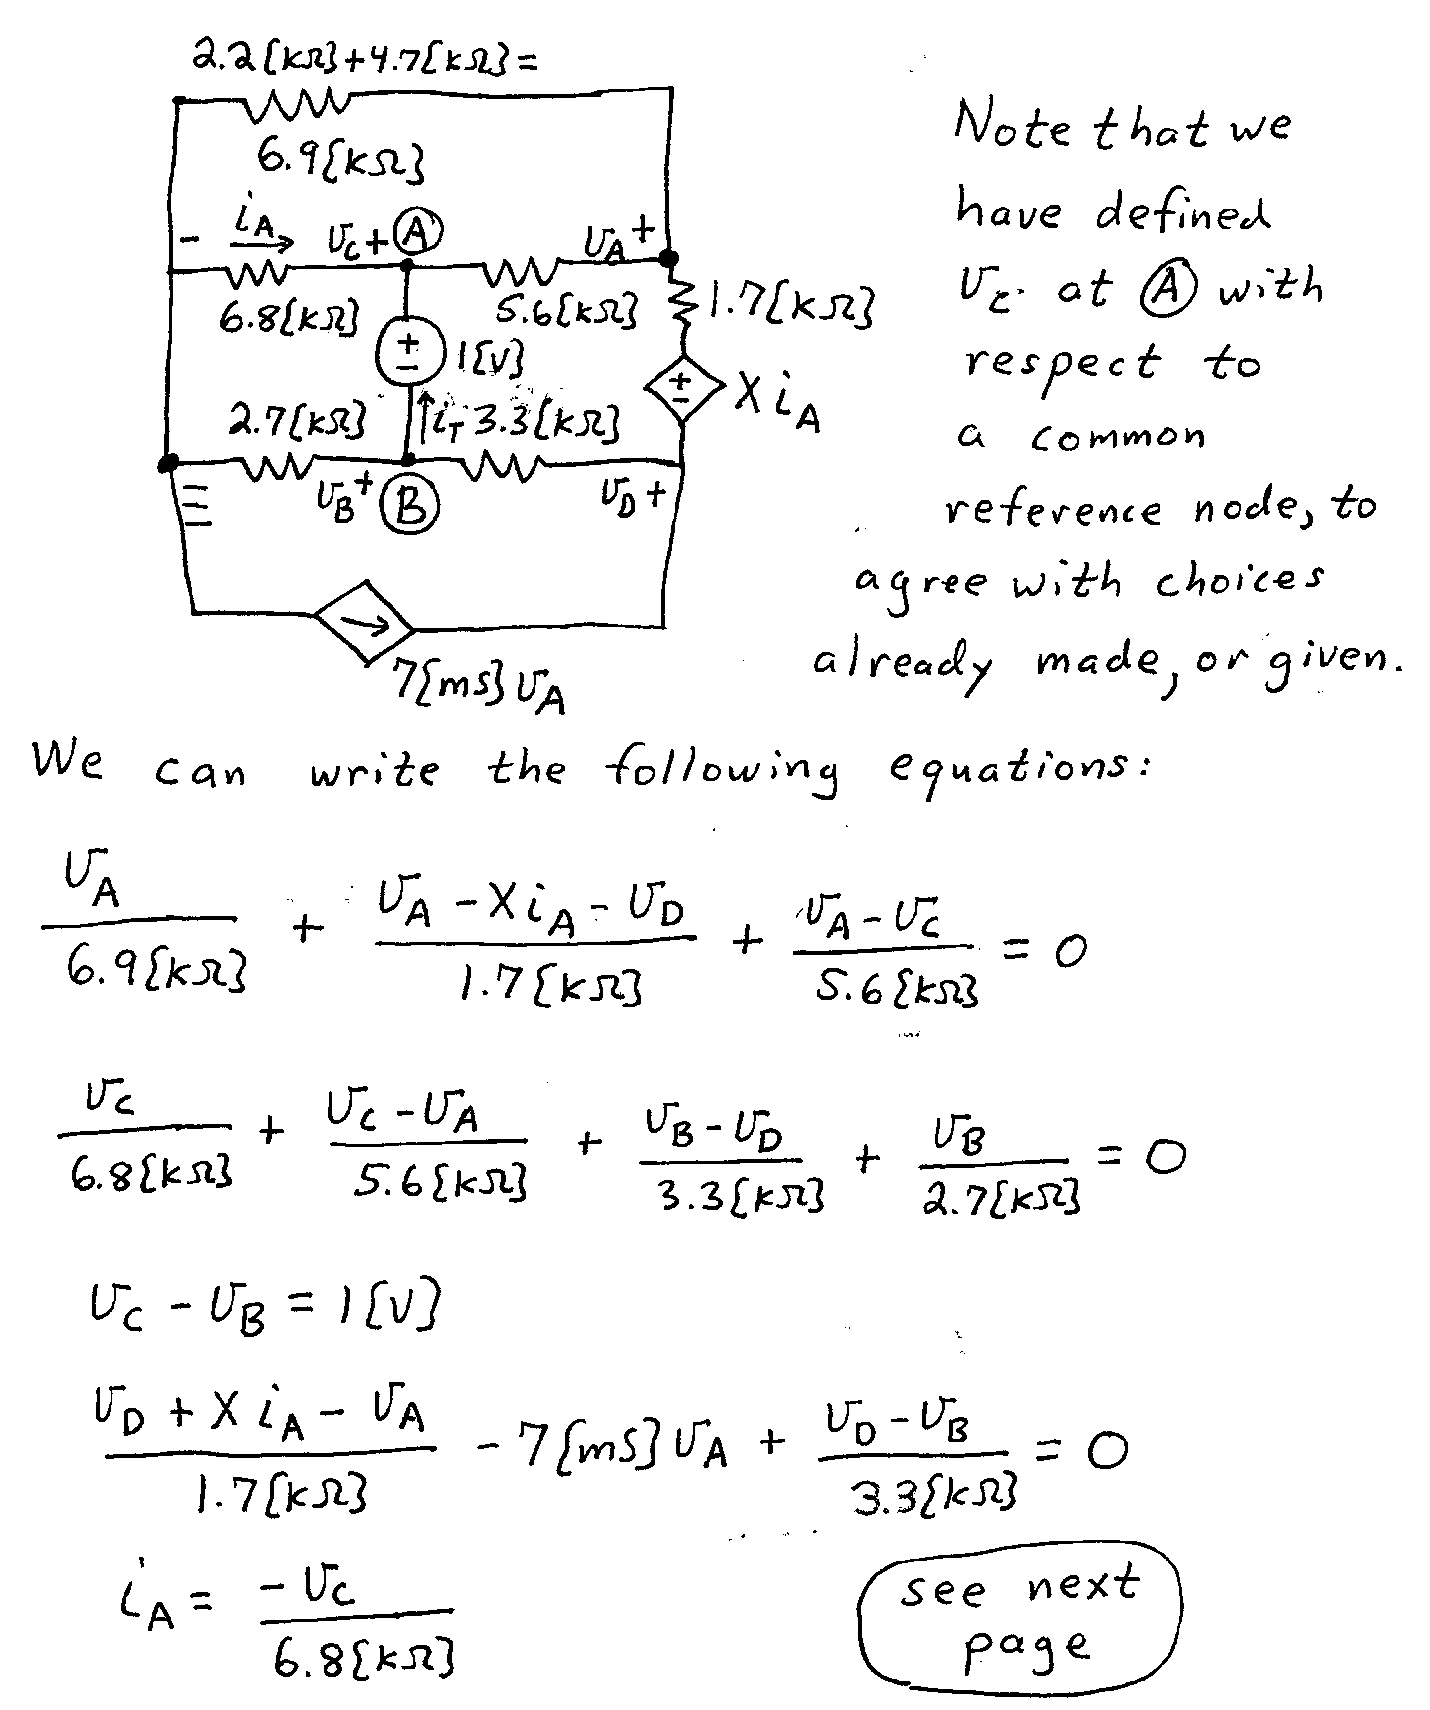 2.2[kΩ]+4.7[kΩ]=
6.9[kΩ]
- iA vC + A vA +
6.8[kΩ] 5.6[kΩ] 1.7[kΩ]
+ - 1[V] + - X iA
2.7[kΩ] iT 3.3[kΩ]
vB + B vD +
7[mS] vA
Note that we
have defined
vC at A with
respect to
a common
reference node, to
agree with choices
already made, or given.
We can write the following equations:
vA/6.9[kΩ] + (vA - X iA - vD)/1.7[kΩ] + (vA - vC)/5.6[kΩ] = 0
vC/6.8[kΩ] + (vC - vA)/5.6[kΩ] + (vB - vD)/3.3[kΩ] + vB/2.7[kΩ] = 0
vC - vB = 1[V]
(vD + X iA - vA)/1.7[kΩ] - 7[mS] vA + (vD - vB)/3.3[kΩ] = 0
iA = -vC/6.8[kΩ]
see next
page